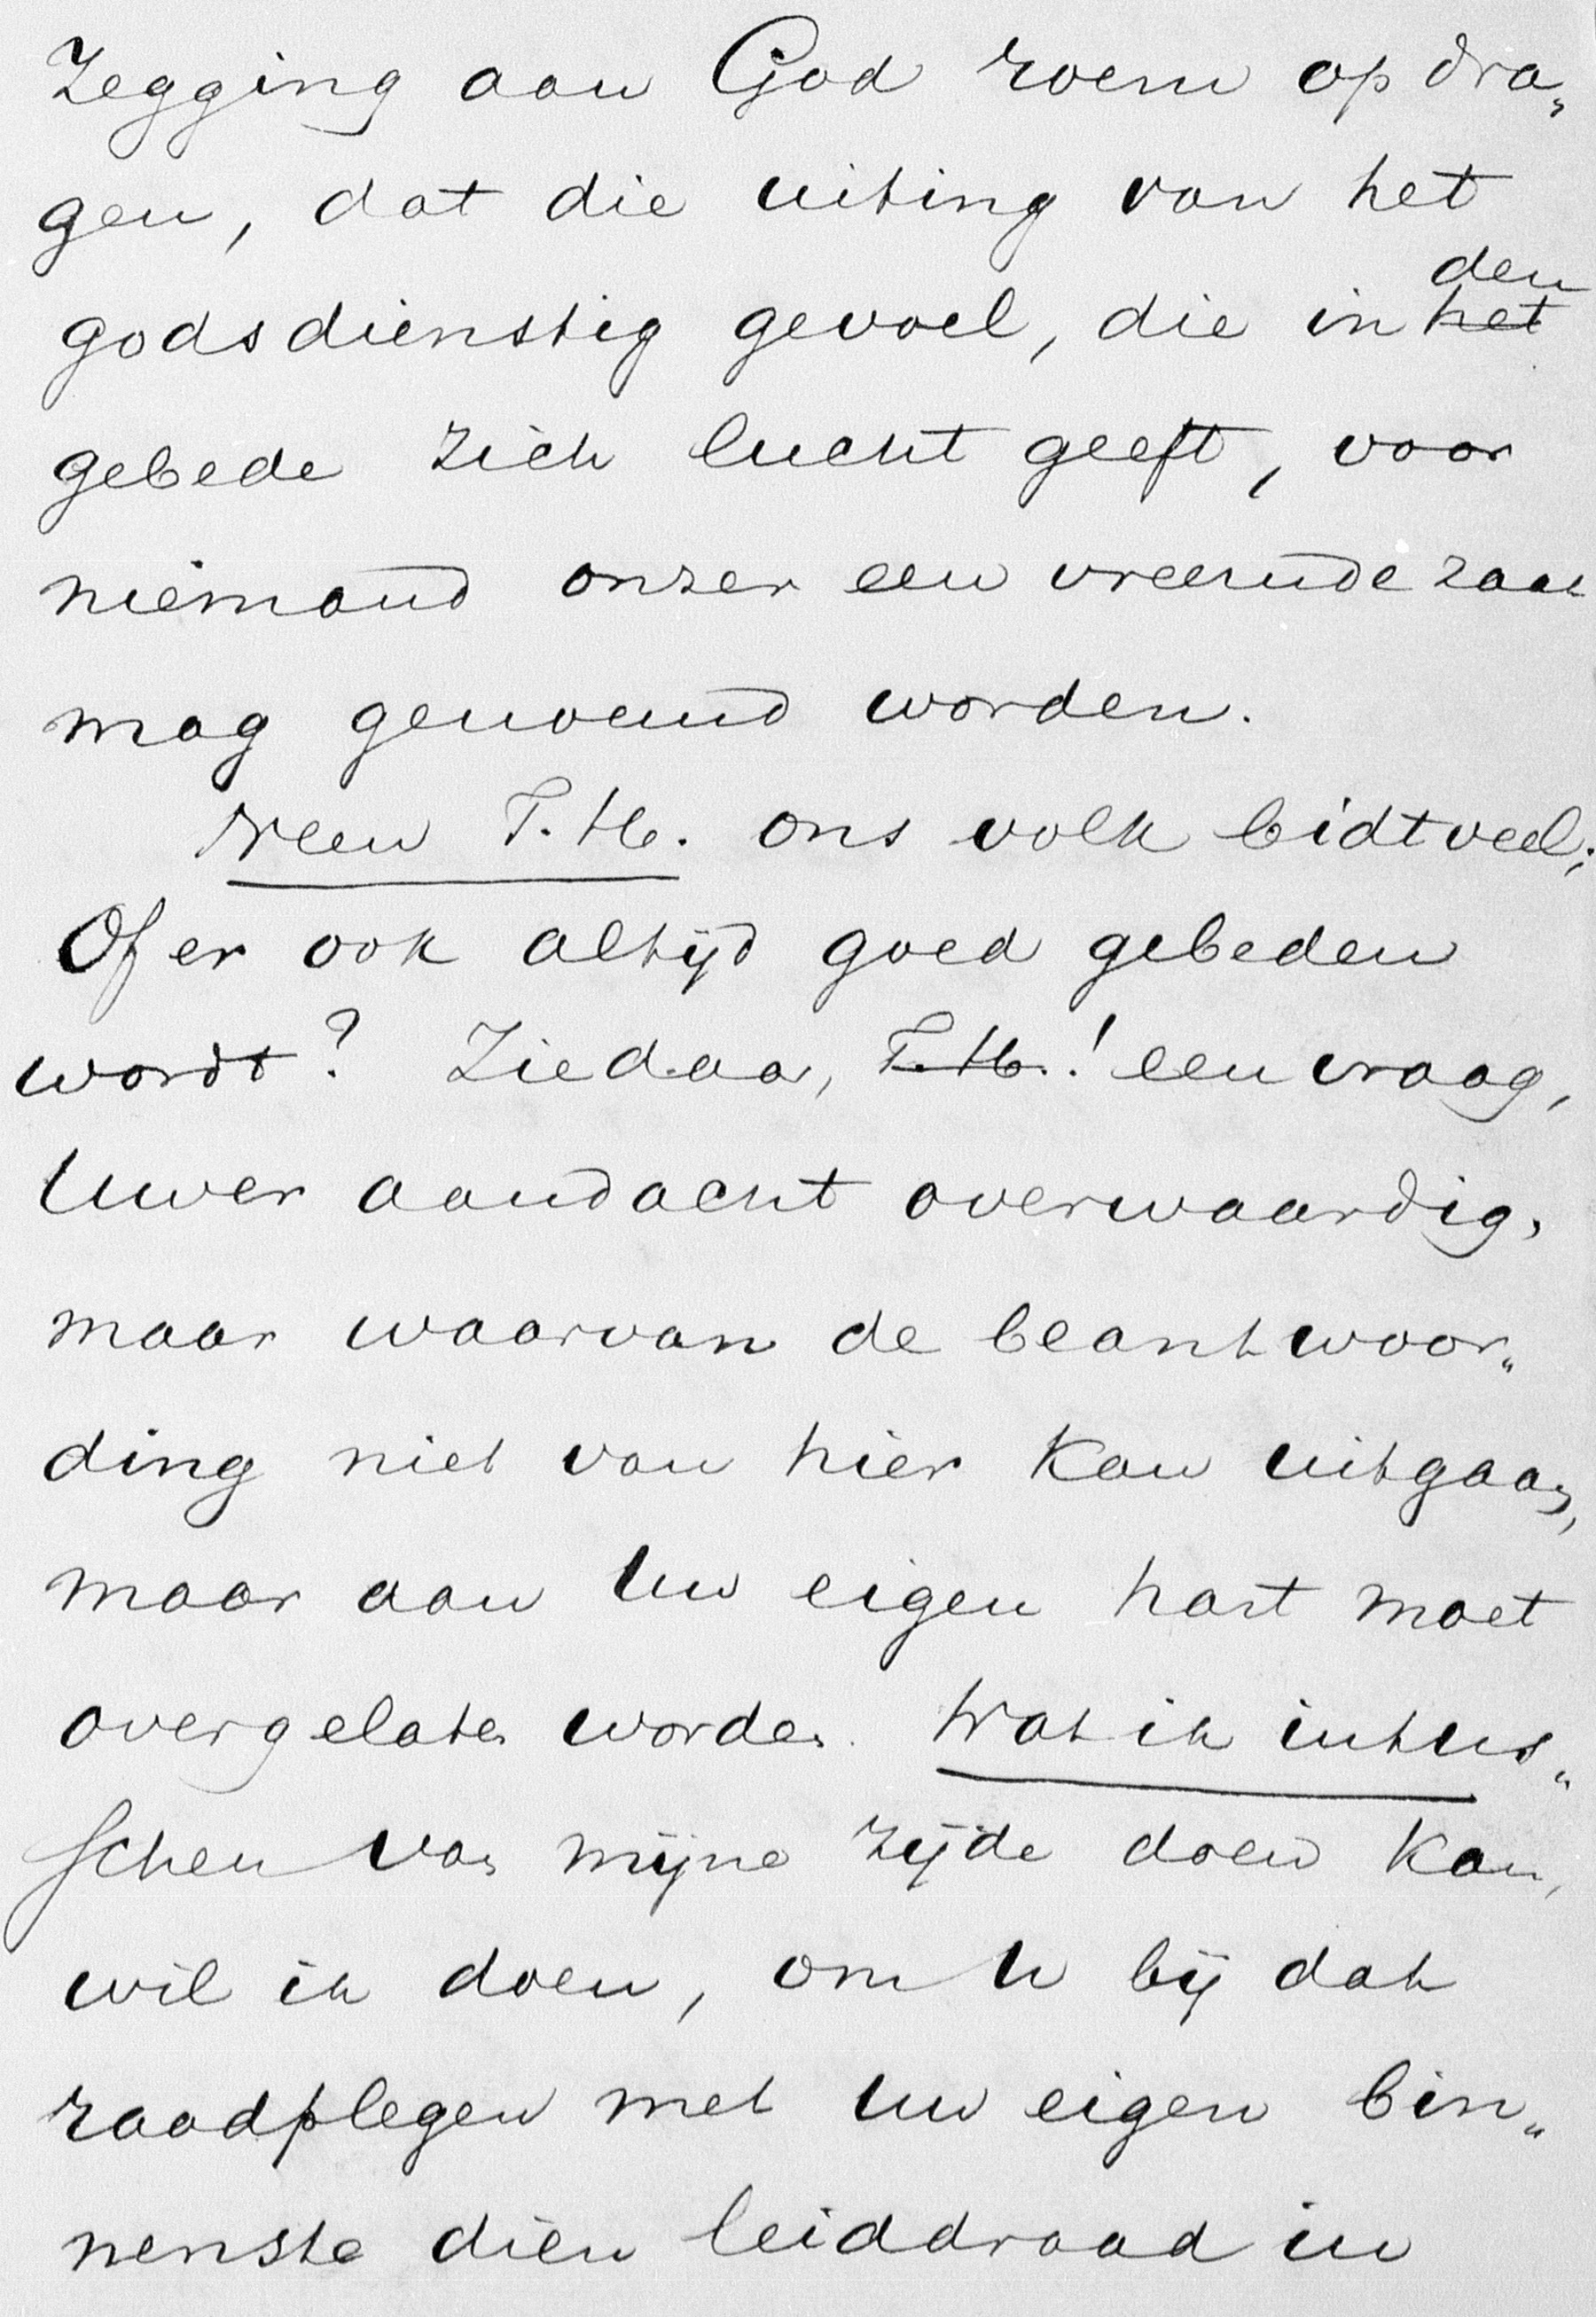 Zegging aan God roem op dra„
gen, dat die uiting van het
den
godsdienstig gevoel, die in het
gebede zich lucht geeft, voor
niemand onzer een vreemde zaak
mag genoemd worden.
Neen T. H. ons volk bidt veel;
Of er ook altijd goed gebeden
wordt? Ziedaar, T. H.! een vraag,
Uwer aandacht overwaardig,
maar waarvan de beantwoor„
ding niet van hier kan uitgaan,
maar aan Uw eigen hart moet
overgelaten worden. Wat ik intus„
schen van mijne zijde doen kan,
wil ik doen, om U bij dat
raadplegen met Uw eigen bin„
nenste dien leiddraad in